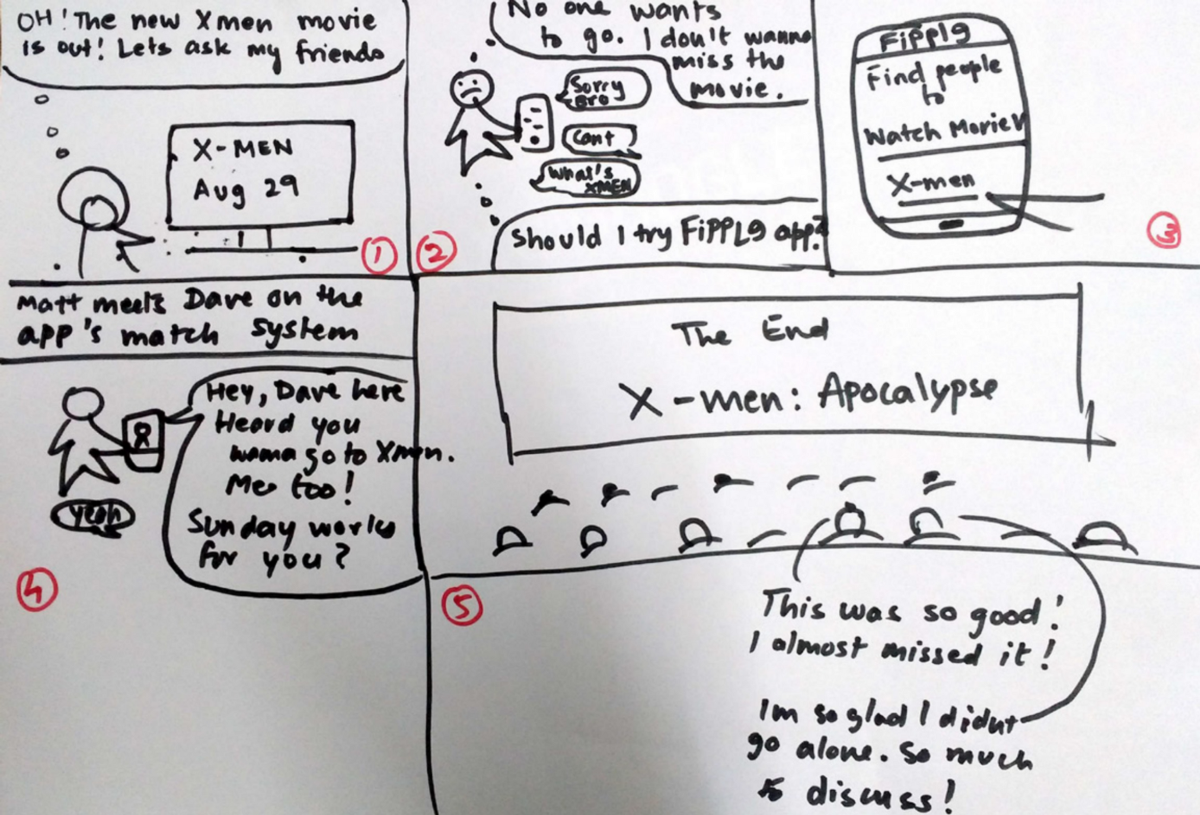 OH! The new Xmen movie
is out! Lets ask my friends
X-MEN
Aug 29
1
No one wants
to go. I don't wanna
miss the
movie.
Sorry
Bro
Cant
What's
XMEN
Should I try FiPPL9 app?
2
FiPPl9
Find people
to
Watch Movies
X-men
3
Matt meets Dave on the
app's match system
Hey, Dave here
Heard you
wanna go to Xmen.
Me too!
Sunday works
for you?
Yeah
4
The End
X-men: Apocalypse
5
This was so good!
I almost missed it!
Im so glad I didnt
go alone. So much
to discuss!